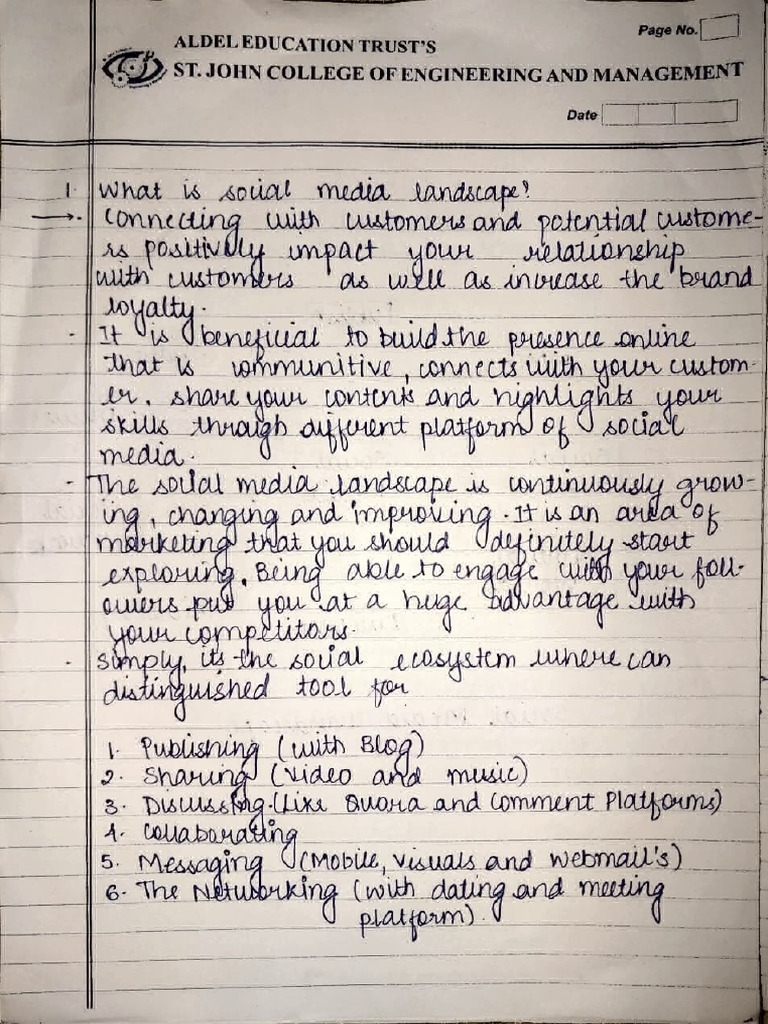 Page No.
ALDEL EDUCATION TRUST'S
ST. JOHN COLLEGE OF ENGINEERING AND MANAGEMENT
Date
1. What is social media landscape?
→ . Connecting with customers and potential custome-
rs positively impact your relationship
with customers as well as increase the brand
loyalty.
- It is beneficial to build the presence online
that is communitive, connects with your custom-
er. share your contents and highlights your
skills through different platform of social
media.
- The social media landscape is continuously grow-
ing, changing and improving. It is an area of
marketing that you should definitely start
exploring. Being able to engage with your foll-
owers put you at a huge advantage with
your competitors.
- Simply, its the social ecosystem where can
distinguished tool for
1. Publishing (with Blog)
2. Sharing (video and music)
3. Discussing (Like Quora and Comment Platforms)
4. Collaborating
5. Messaging (Mobile, visuals and webmail's)
6. The Networking (with dating and meeting
platform).